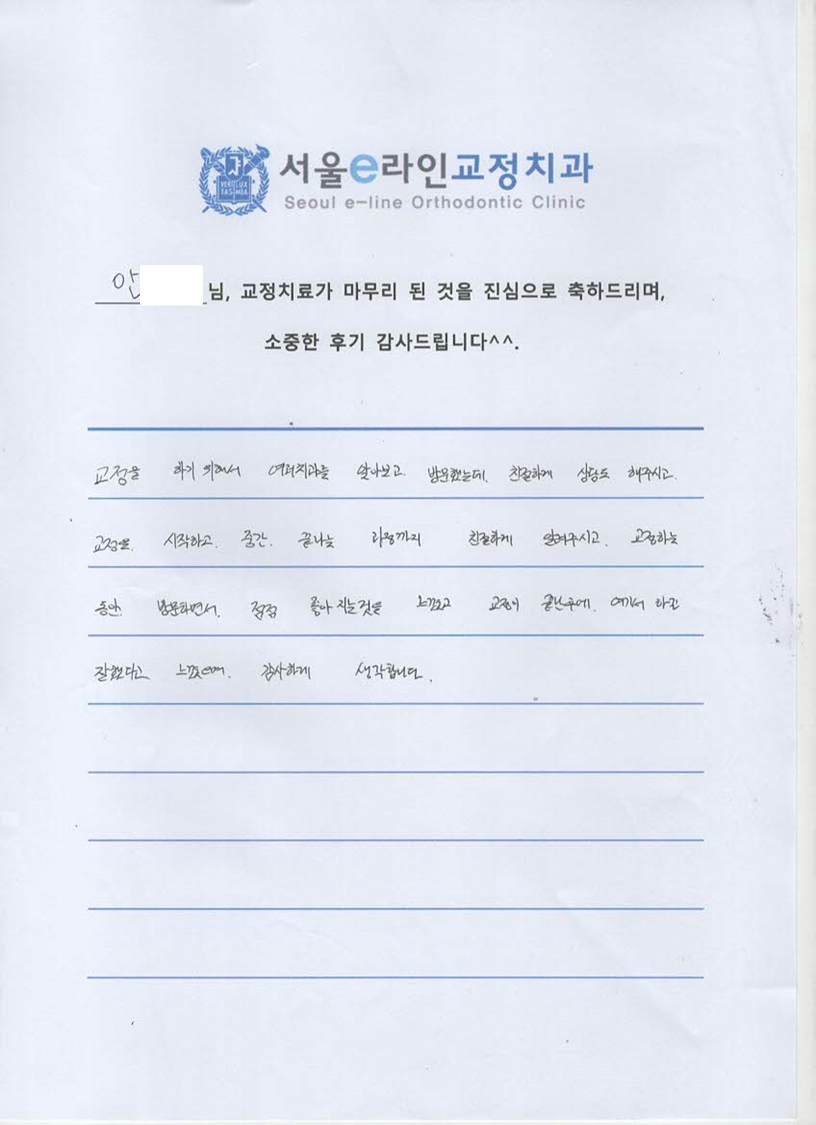 서울e라인교정치과
Seoul e-line Orthodontic Clinic
안 님, 교정치료가 마무리 된 것을 진심으로 축하드리며,
소중한 후기 감사드립니다^^.
교정을 하기 위해서 여러치과를 알아보고 방문했는데, 친절하게 상담도 해주시고
교정을 시작하고, 중간, 끝나는 과정까지 친절하게 알려주시고, 교정하는
동안 방문하면서, 점점 좋아지는것을 느꼈고 교정이 끝난후에, 여기서 하고
잘했다고 느꼈으며, 감사하게 생각합니다.